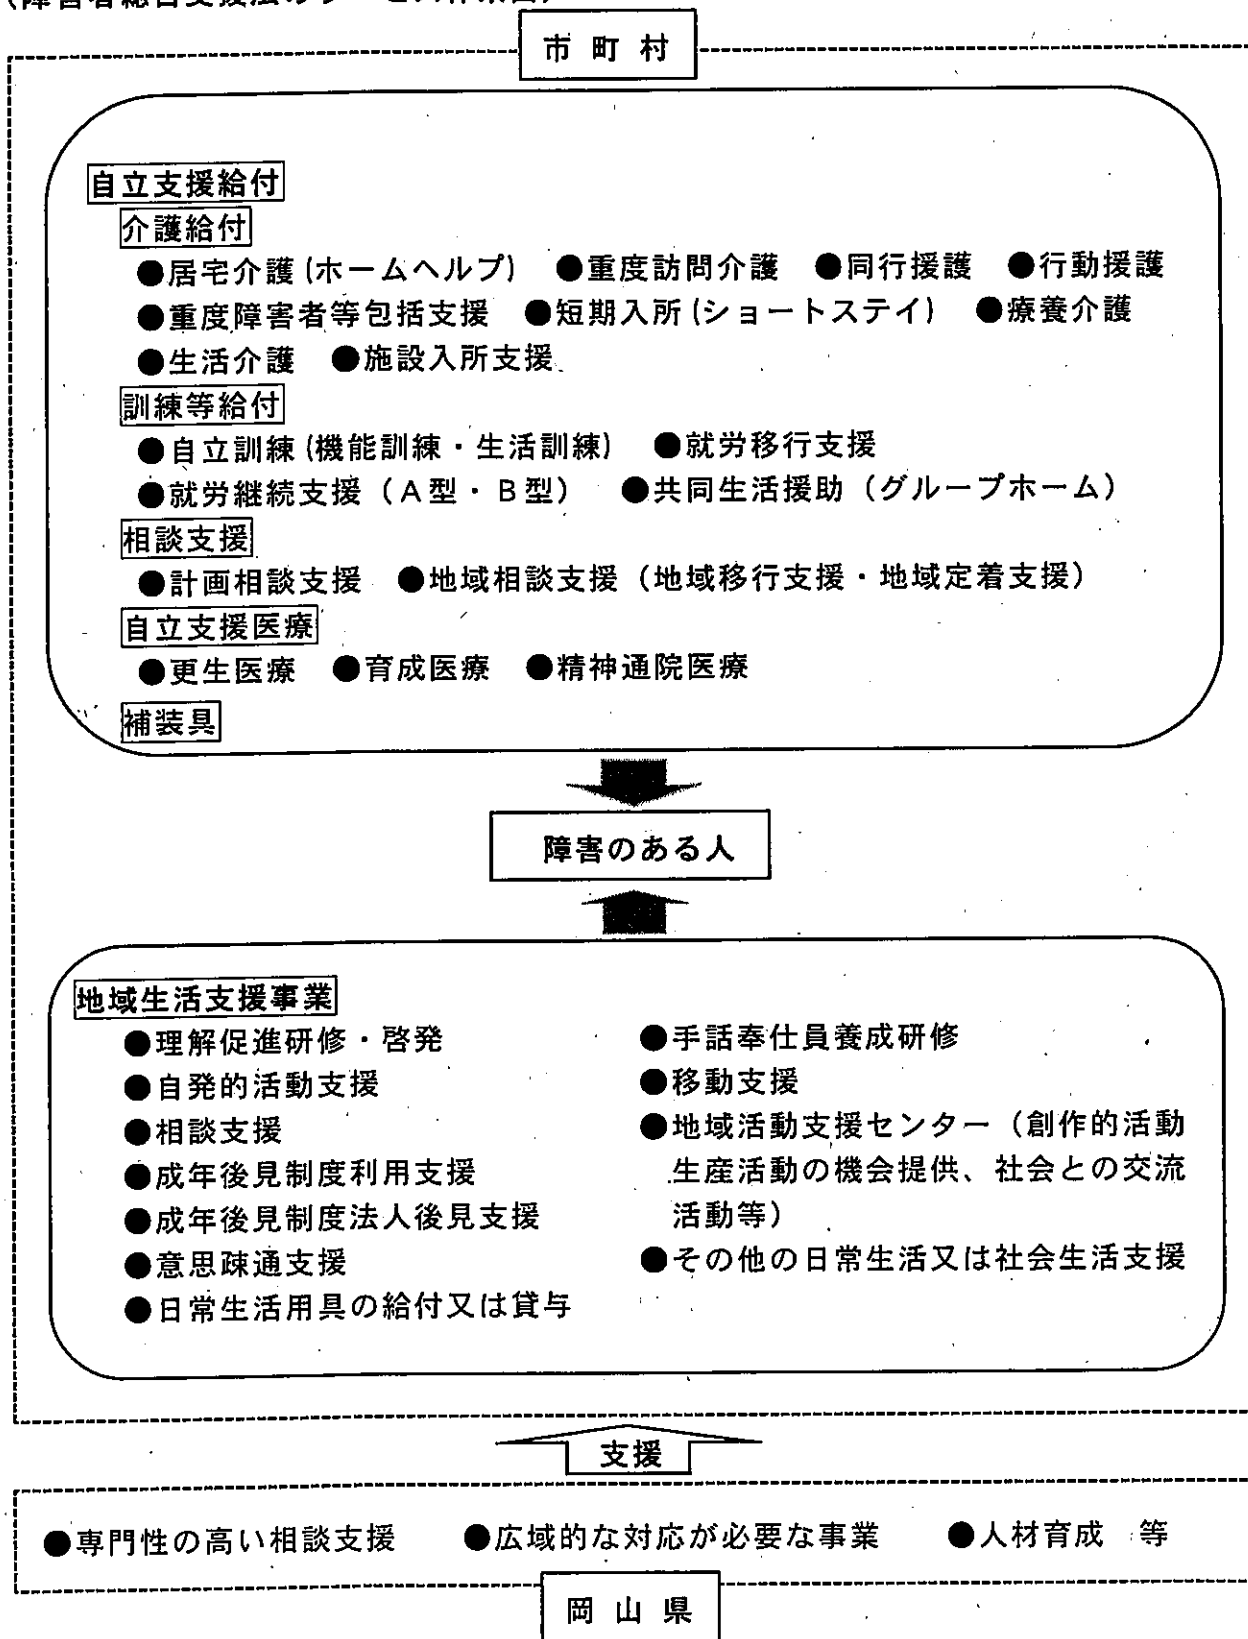 市町村
自立支援給付
介護給付
●居宅介護(ホームヘルプ) ●重度訪問介護 ●同行援護 ●行動援護
●重度障害者等包括支援 ●短期入所(ショートステイ) ●療養介護
●生活介護 ●施設入所支援
訓練等給付
●自立訓練(機能訓練・生活訓練) ●就労移行支援
●就労継続支援(A型・B型) ●共同生活援助(グループホーム)
相談支援
●計画相談支援 ●地域相談支援(地域移行支援・地域定着支援)
自立支援医療
●更生医療 ●育成医療 ●精神通院医療
補装具
障害のある人
地域生活支援事業
●理解促進研修・啓発
●自発的活動支援
●相談支援
●成年後見制度利用支援
●成年後見制度法人後見支援
●意思疎通支援
●日常生活用具の給付又は貸与
●手話奉仕員養成研修
●移動支援
●地域活動支援センター(創作的活動
生産活動の機会提供、社会との交流
活動等)
●その他の日常生活又は社会生活支援
支援
●専門性の高い相談支援 ●広域的な対応が必要な事業 ●人材育成 等
岡山県